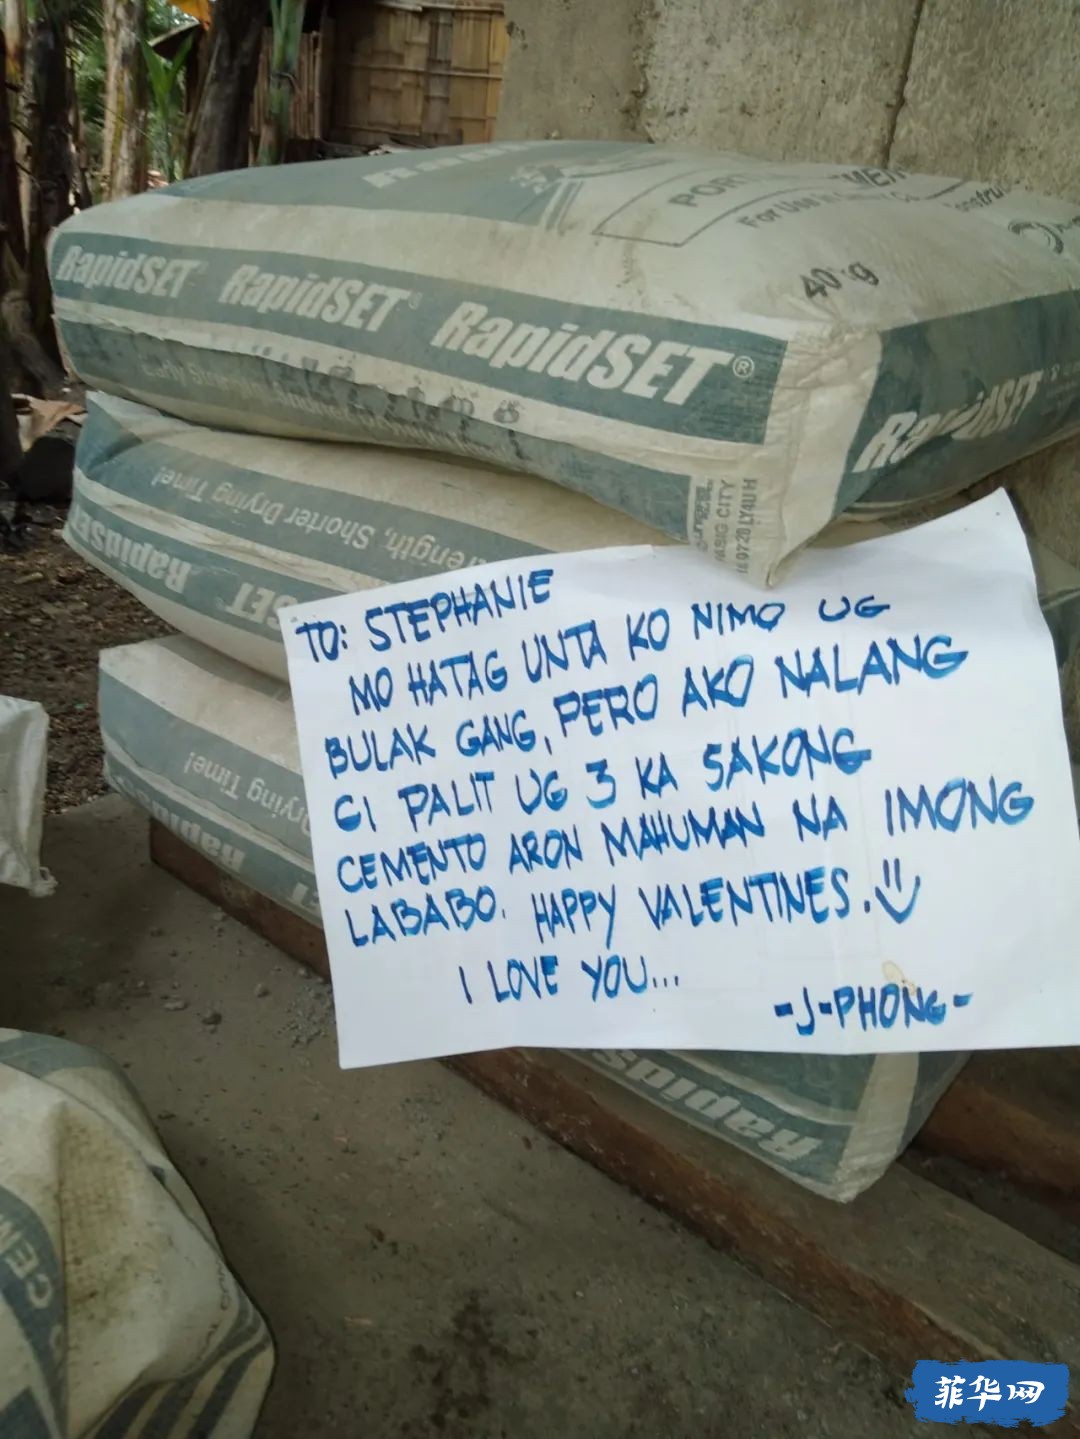 RapidSET RapidSET RapidSET®
40
RapidSET
Strength, Shorter Drying Time!
RapidSET
Drying Time!
TO: STEPHANIE
MO HATAG UNTA KO NIMO UG
BULAK GANG, PERO AKO NALANG
GI PALIT UG 3 KA SAKONG
CEMENTO ARON MAHUMAN NA IMONG
LABABO. HAPPY VALENTINES.
I LOVE YOU...
-J-PHONG-
RapidSET
CEM
菲华网